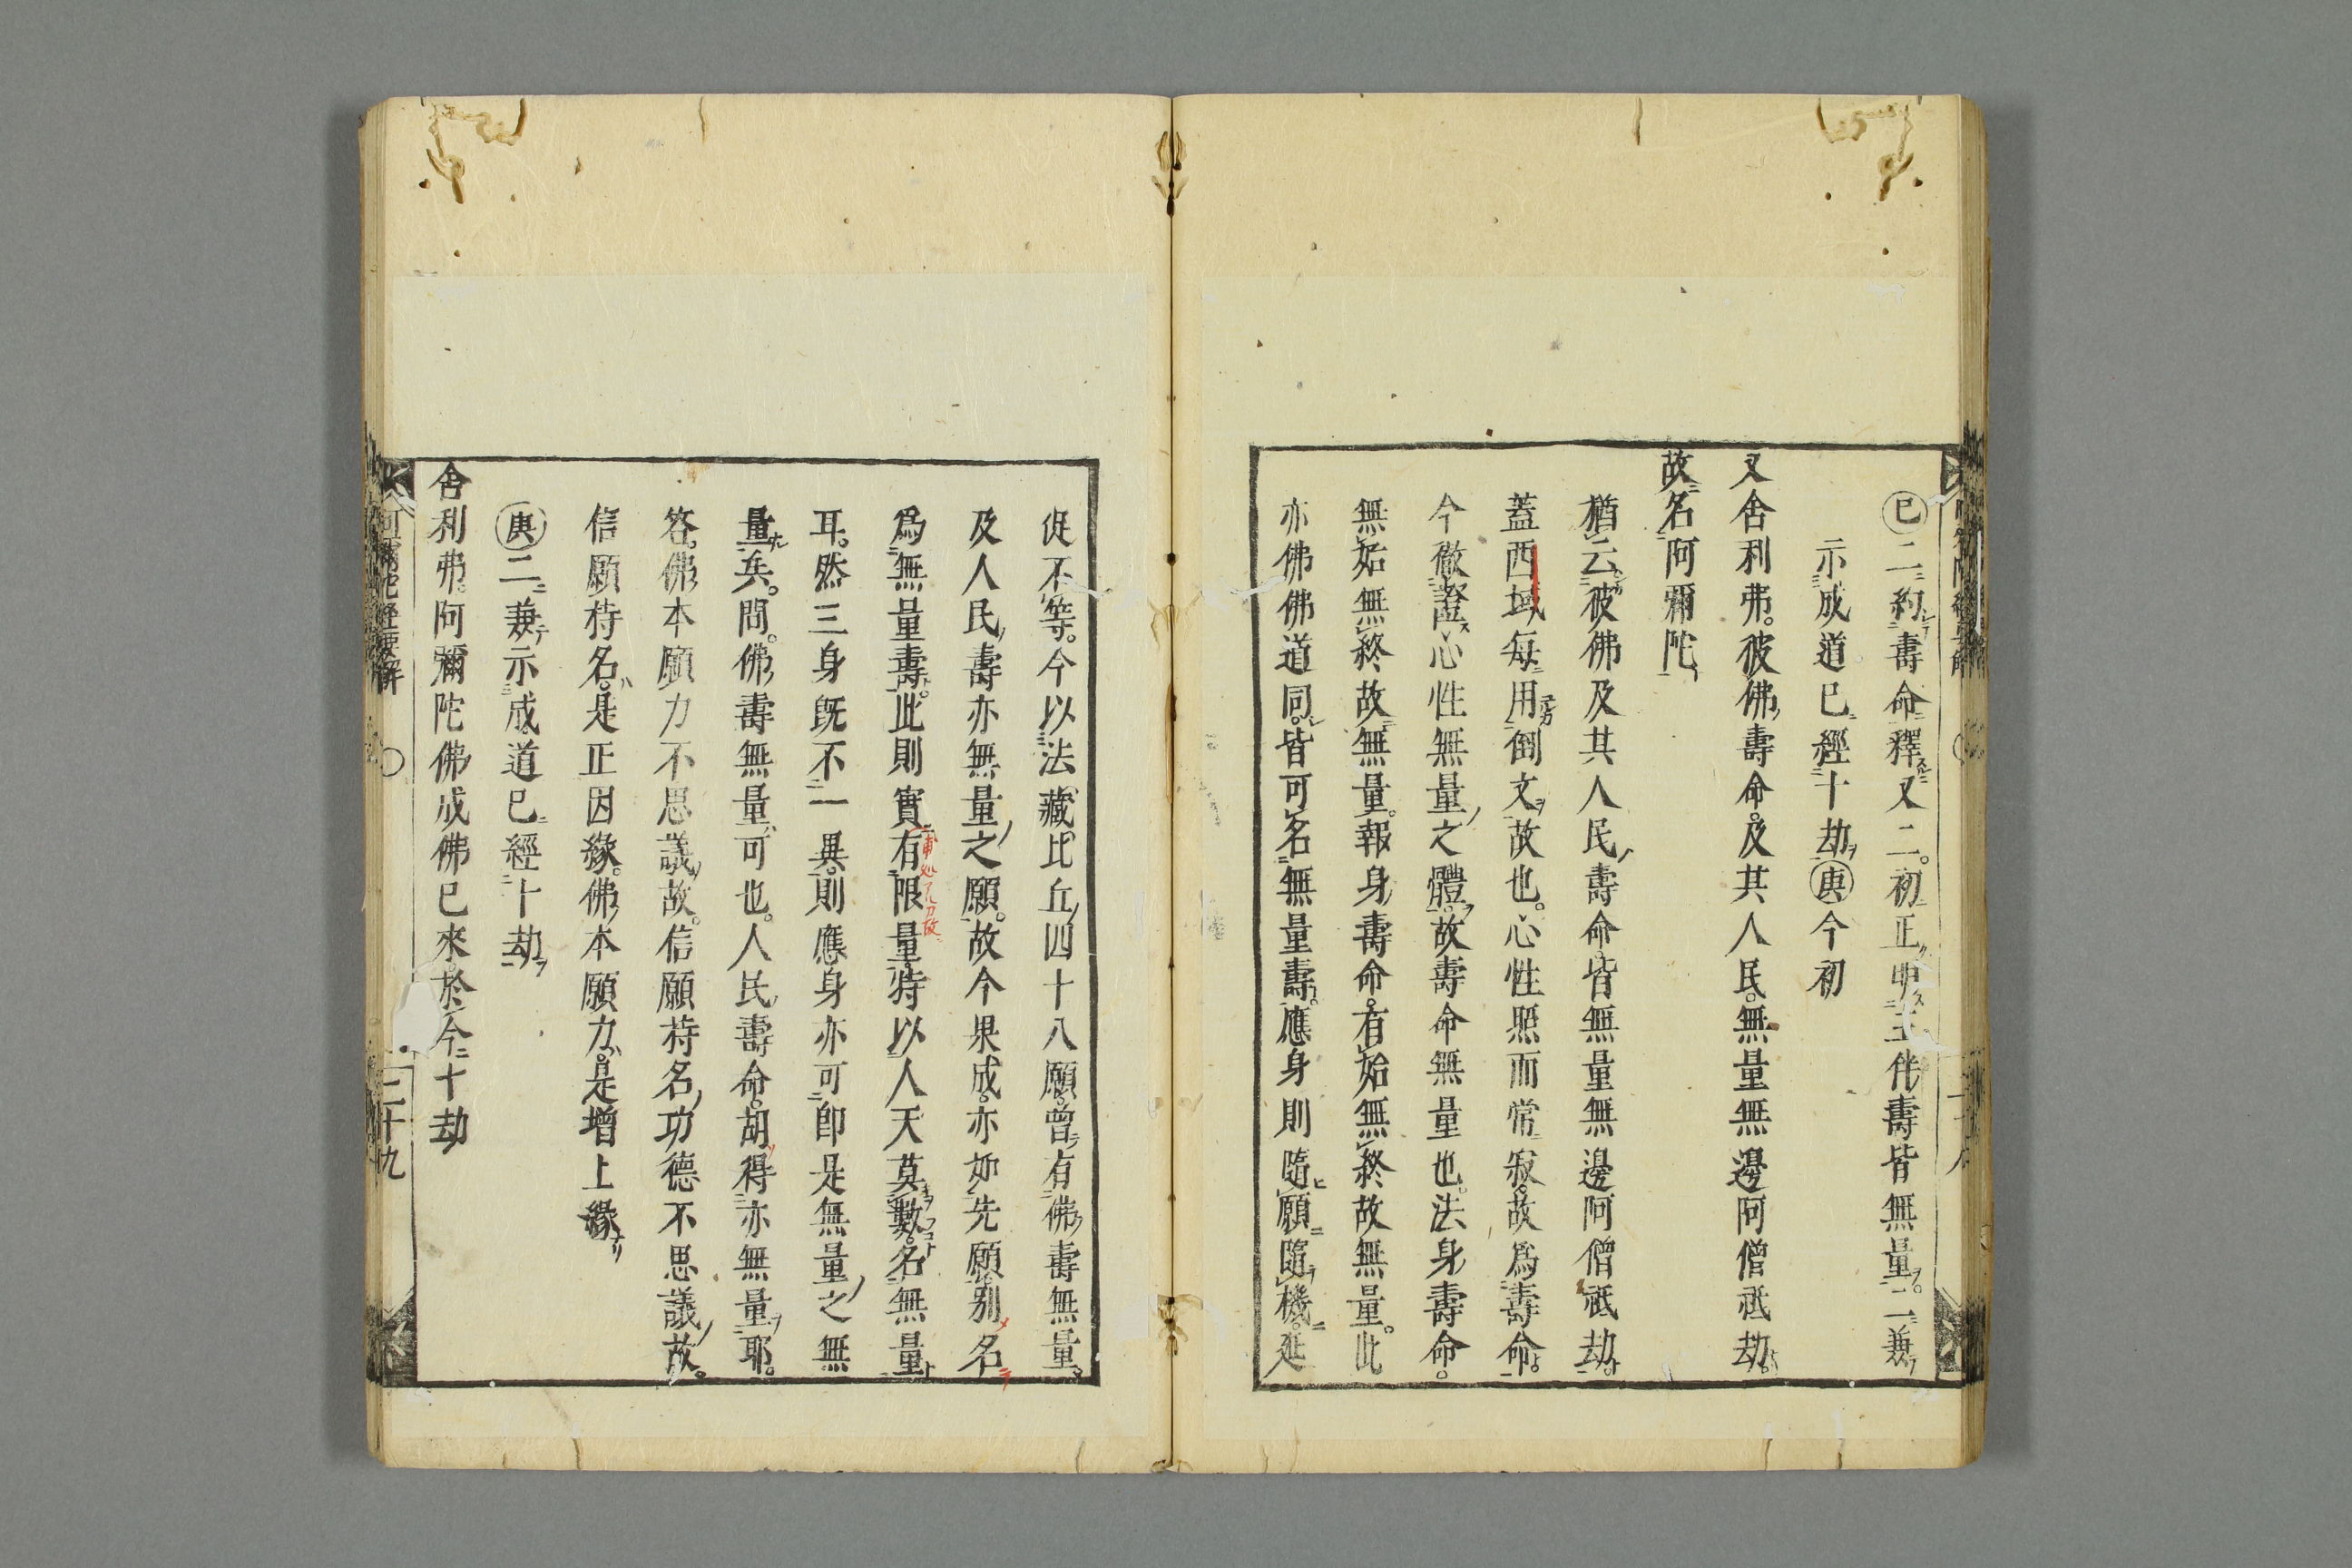 ㊁二約壽命釋又二。初正明主伴壽皆無量。二兼
示成道已經十劫㊍今初
又舍利弗。彼佛壽命。及其人民。無量無邊阿僧祇劫。
故名阿彌陀
猶云彼佛及其人民壽命。皆無量無邊阿僧祇劫。
蓋西域每用倒文故也。心性照而常寂。故爲壽命。
今徹證心性無量之體。故壽命無量也。法身壽命。
無始無終。故無量。報身壽命。有始無終故無量。此
亦佛佛道同。皆可名無量壽。應身則隨願隨機。延
促不等。今以法藏比丘四十八願。曾有佛壽無量。
及人民壽亦無量之願。故今果成。亦如先願別名
爲無量壽。此則實有限量。特以人天莫數。名無量
耳。然三身既不一異。則應身亦可即是無量之無
量矣。問。佛壽無量可也。人民壽命。胡得亦無量耶。
答。佛本願力不思議故。信願持名功德不思議故。
信願持名。是正因緣。佛本願力。是增上緣
庚二兼示成道已經十劫
舍利弗。阿彌陀佛成佛已來。於今十劫
阿彌陀經要解
二十九